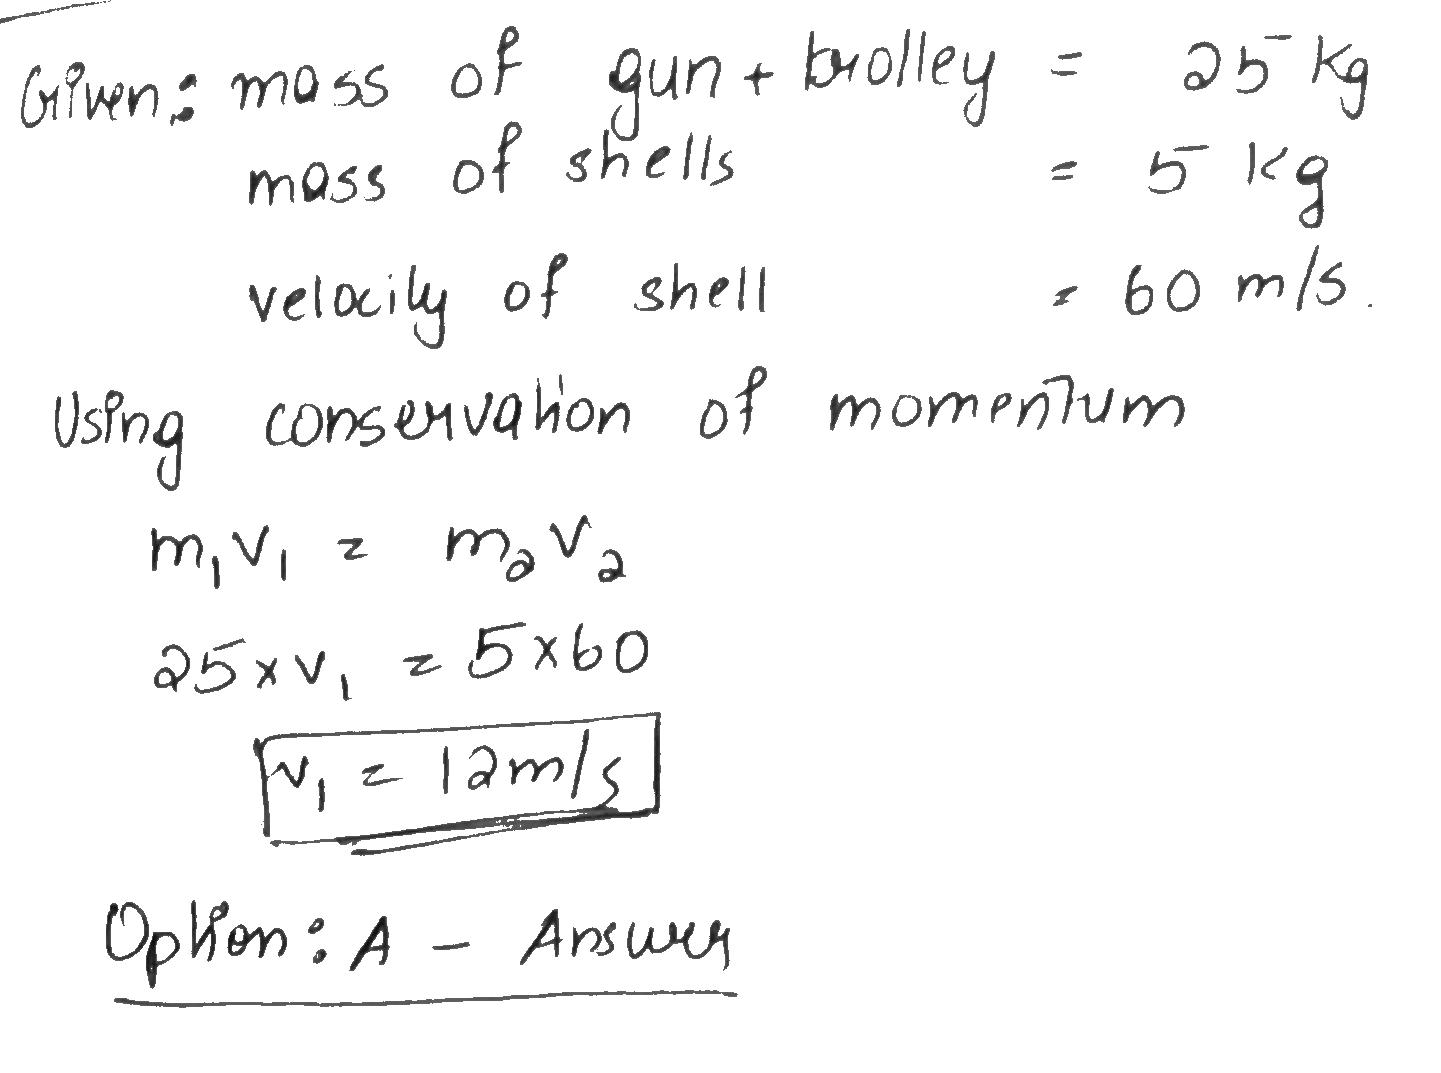 Given: mass of gun + trolley = 25 kg
mass of shells = 5 kg
velocity of shell = 60 m/s.
Using conservation of momentum
m₁v₁ = m₂v₂
25 x v₁ = 5 x 60
v₁ = 12m/s
Option: A - Answer